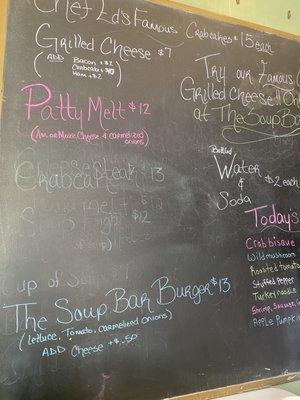 Chef Ed's Famous
Crabcakes $15 each
Grilled Cheese $7
(ADD Bacon +$2
Crabcake
Ham +$2)
Try our Famous
Grilled Cheese
at The Soup Bar
Patty Melt $12
(American Cheese & caramelized
onions)
Crabcake
13
$12
Bottled
Water $2 each
&
Soda
Todays
Crab bisque
Wild mushroom
Roasted tomato
Stuffed Pepper
Turkey noodle
Shrimp, Sausage,
Apple Pumpkin
up of
The Soup Bar Burger $13
(Lettuce, Tomato, caramelized onions)
ADD Cheese +$.50